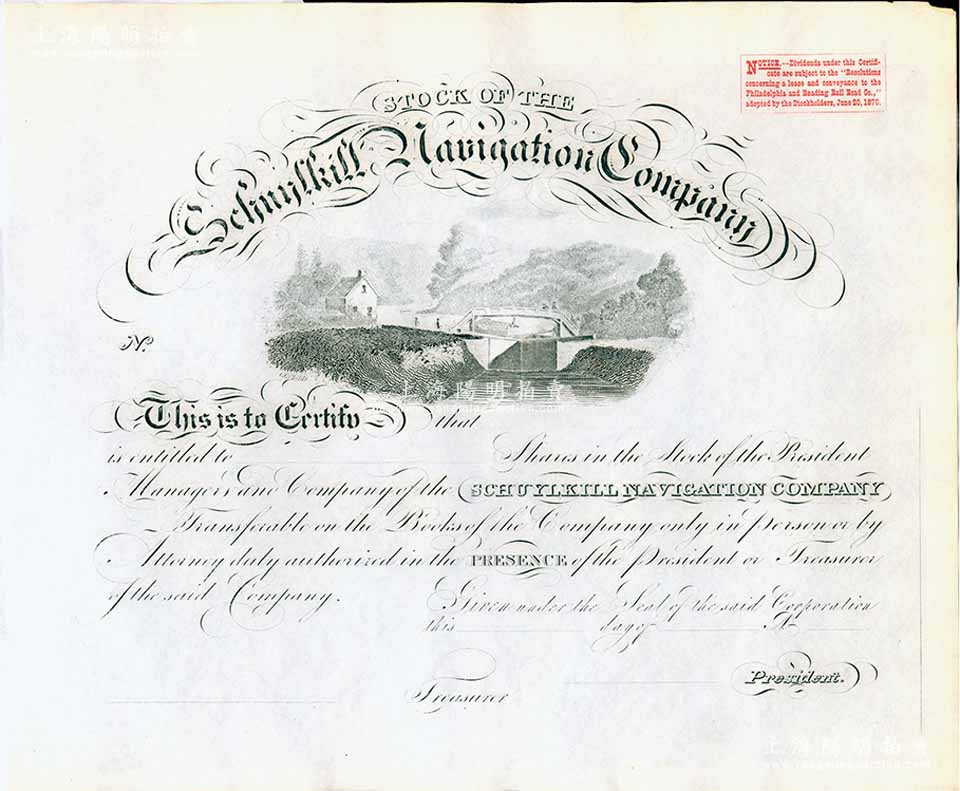 上海陽明拍賣
NOTICE.—Dividends under this Certifi-
cate are subject to the "Resolutions
concerning a lease and conveyance to the
Philadelphia and Reading Rail Road Co.,"
adopted by the Stockholders, June 20, 1870.
STOCK OF THE
Schuylkill Navigation Company
No.
上海陽明拍賣
www.yangmingauction.com
This is to Certify that
is entitled to Shares in the Stock of the President
Managers and Company of the SCHUYLKILL NAVIGATION COMPANY
Transferable on the Books of the Company only in person or by
Attorney duly authorized in the PRESENCE of the President or Treasurer
of the said Company.
Given under the Seal of the said Corporation
this day of A
Treasurer
President.
上海陽明拍賣
www.yangmingauction.com